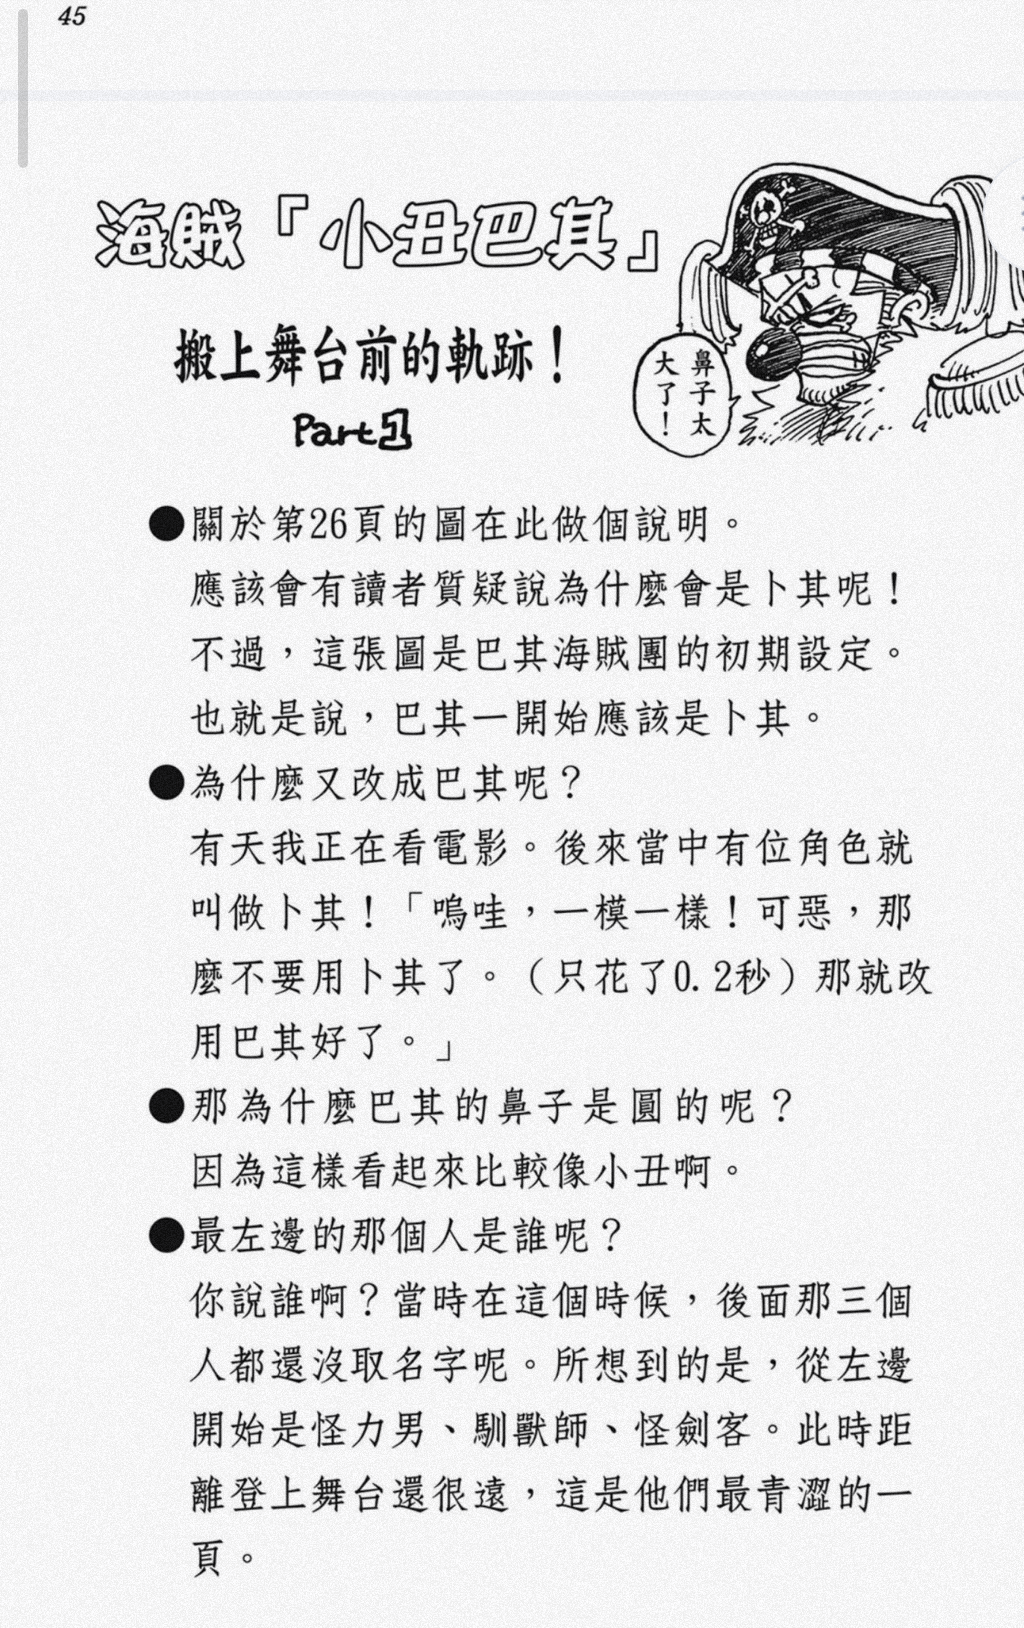 45
海賊「小丑巴其」
搬上舞台前的軌跡！
Part1
鼻子太
大了！
●關於第26頁的圖在此做個說明。
應該會有讀者質疑說為什麼會是卜其呢！
不過，這張圖是巴其海賊團的初期設定。
也就是說，巴其一開始應該是卜其。
●為什麼又改成巴其呢？
有天我正在看電影。後來當中有位角色就
叫做卜其！「嗚哇，一模一樣！可惡，那
麼不要用卜其了。（只花了0.2秒）那就改
用巴其好了。」
●那為什麼巴其的鼻子是圓的呢？
因為這樣看起來比較像小丑啊。
●最左邊的那個人是誰呢？
你說誰啊？當時在這個時候，後面那三個
人都還沒取名字呢。所想到的是，從左邊
開始是怪力男、馴獸師、怪劍客。此時距
離登上舞台還很遠，這是他們最青澀的一
頁。